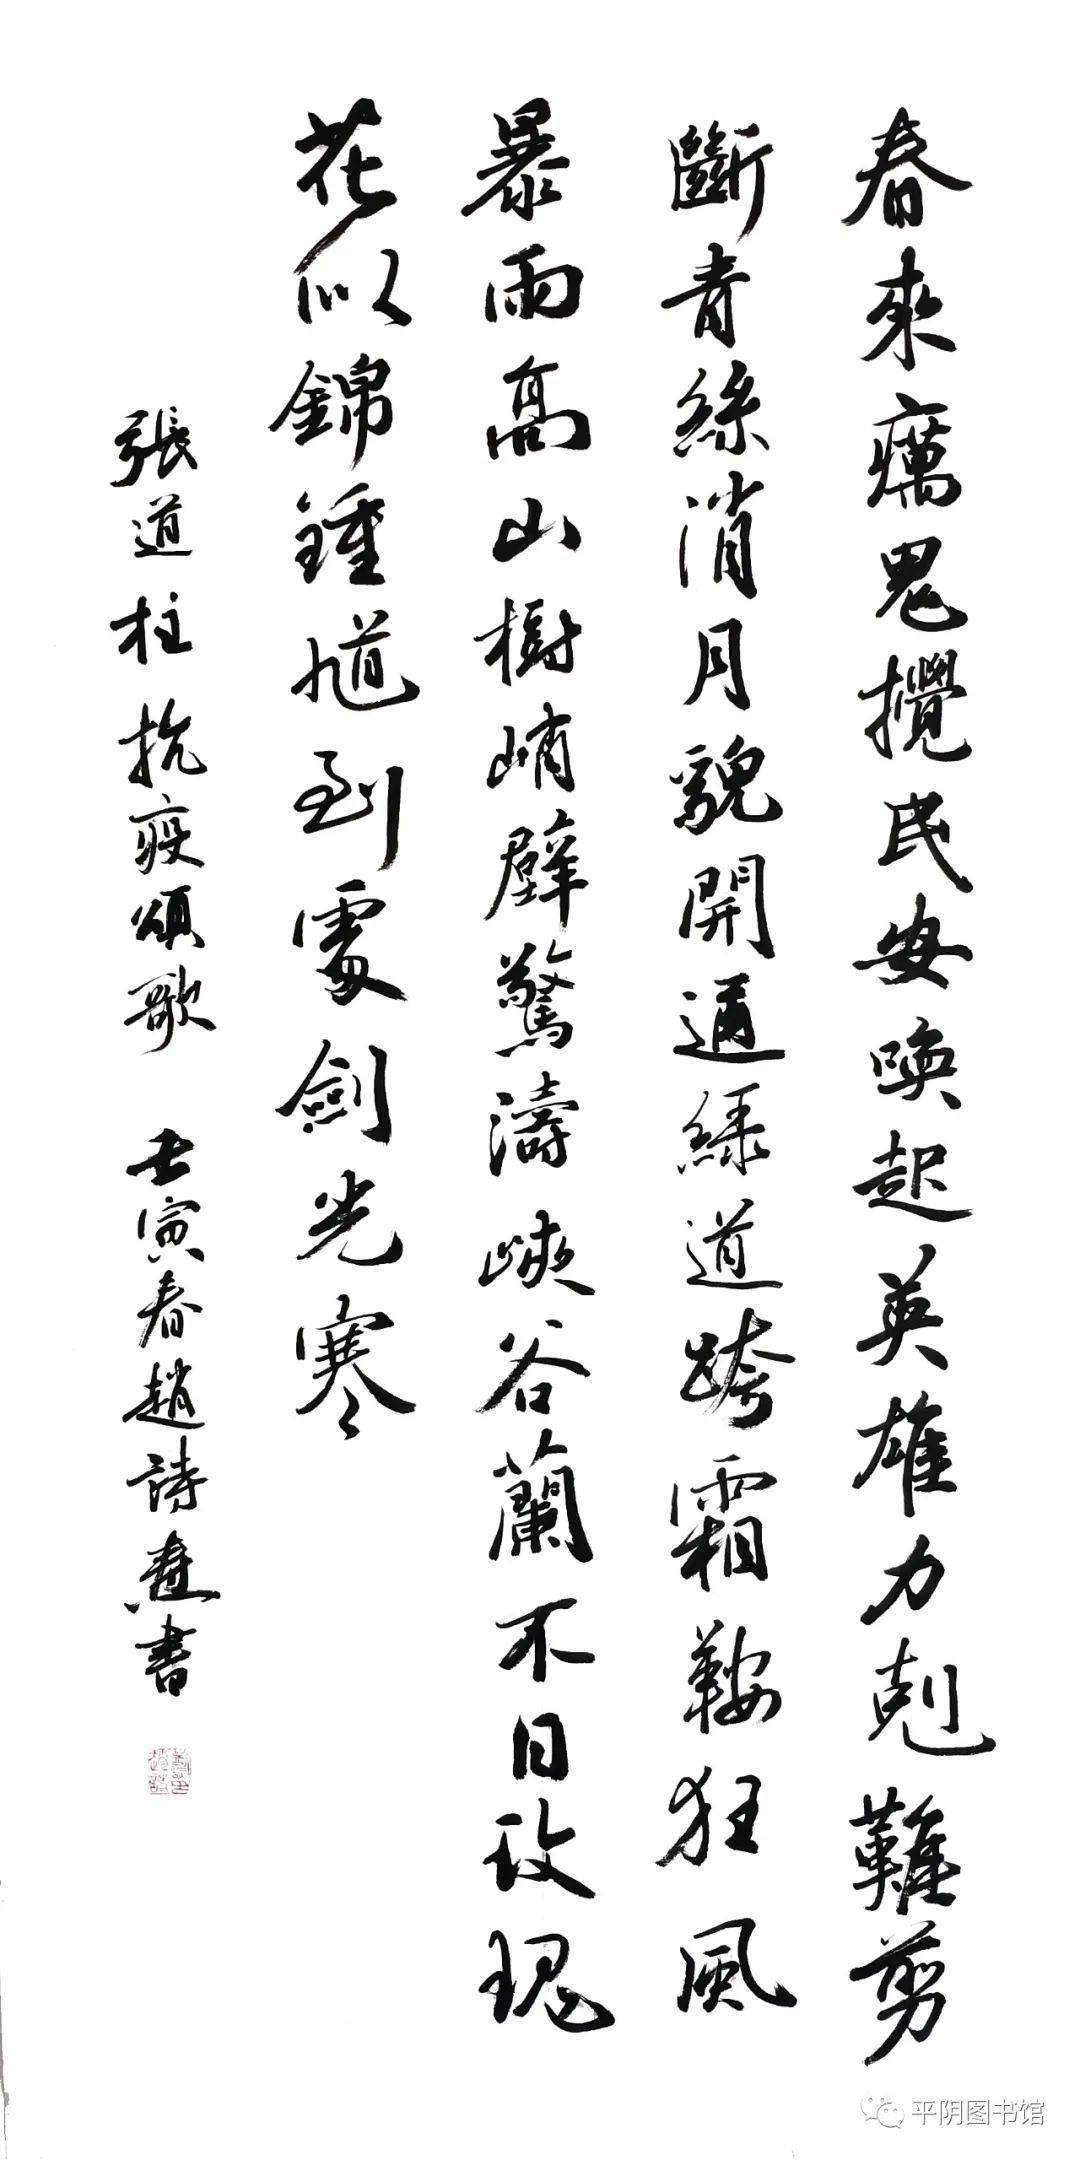 春來癘鬼攪民安喚起英雄力剋難剪
斷青絲消月貌開通綠道跨霜鞍狂風
暴雨高山樹峭壁驚濤峽谷蘭不日玫瑰
花似錦鍾馗到處劍光寒
張道柱抗疫頌歌 壬寅春趙詩燕書
平阴图书馆